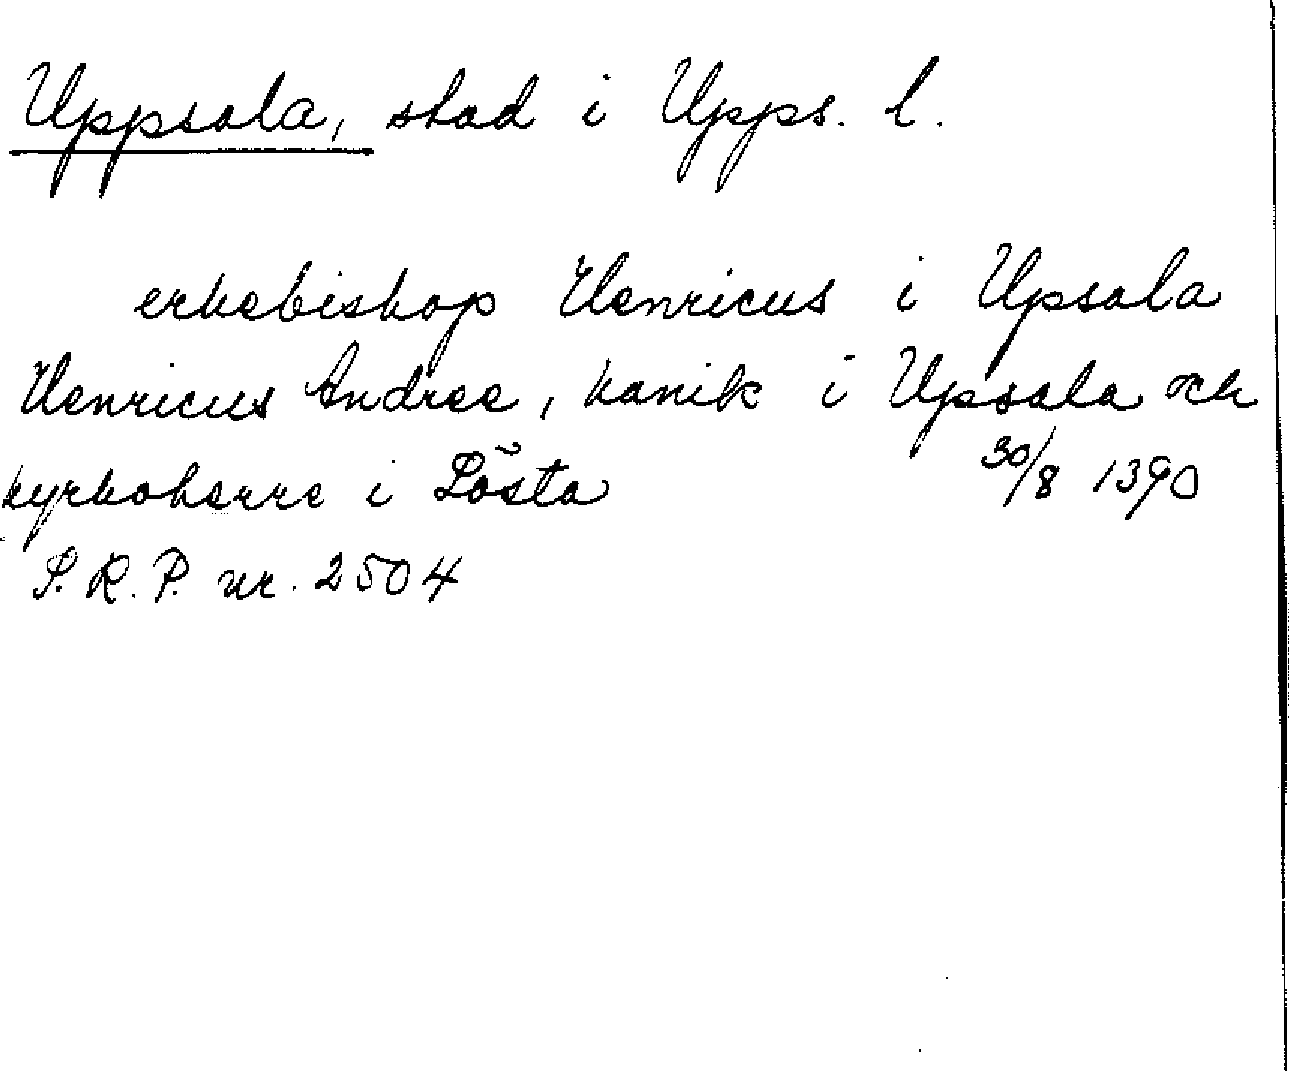 Uppsala, stad i Upps. l.
erkebiskop Henricus i Upsala
Henricus Andree, kanik i Upsala och
kyrkoherre i Lösta 30/8 1390
S.R.P. nr. 2504